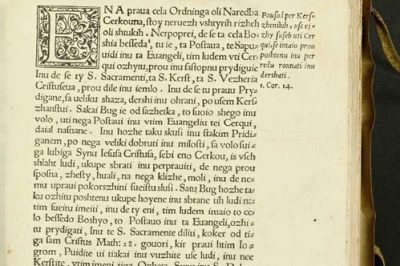 ENA praua cela Ordninga oli Naredba
Cerkouna, ſtoy neruezh vshtyrih rizheh
oli shtukih. Nerpoprei, de ſe ta cela Bo-
shia beſſeda, tu ie, ta Poſtaua, te Sapu-
uidi inu ta Euangeli, tim ludem vti Cer-
qui ozhytu, prou inu ſaſtopnu prydiguie
Inu de ſe ty S. Sacramenti, ta S. Kerſt, ta S. Vezheria
Criſtuſeua, prou dile inu iemlo. Inu de ſe tu prauu Pry-
digane, ſa ueliku shaza, dershi inu ohrani, po uſem Kerſ-
zhanſtui. Sakai Bug ie od ſazhetka, to ſuoio shego inu
volo, uti nega Poſtaui inu vtim Euangeliu tei Cerqui,
daial naſnane. Inu hozhe taku skuſi inu ſtakim Pridi-
ganem, po nega veliki dobruti inu miloſti, ſa volo ſui-
ga lubiga Synu Ieſuſa Criſtuſa, ſebi eno Cerkou, is vſeh
shlaht ludi, ukupe ſbrati inu perprauiti, de nega prou
ſpoſna, zheſty, huali, na nega klizhe, moli, inu de ne-
mu upraui pokorſzhini ſueiſtu slusi. Satu Bug hozhe ta-
ku ozhitu poshtenu ukupe hoyene inu ſbrane tih ludi ne-
tim ſueitu imeiti, inu de ty eni, tim ludem imaio to ce-
lo beſſedo Boshyo, to Poſtauo inu ta Euangeli, ozhi-
tu prydigati, Inu te S. Sacramente diliti, koker od ti-
ga ſam Criſtus Math: 28. gouori, kir praui htim Io-
grom, Puidite ui tiakai inu vuzhite uſe ludi, inu nee
Pouſod per Kerſ-
zhenikih, uſe ri-
zhy ſoſebuti Cer
qui, ſe imaio prou
poshtenu inu per
redu rounati inu
dershati.
1. Cor. 14.